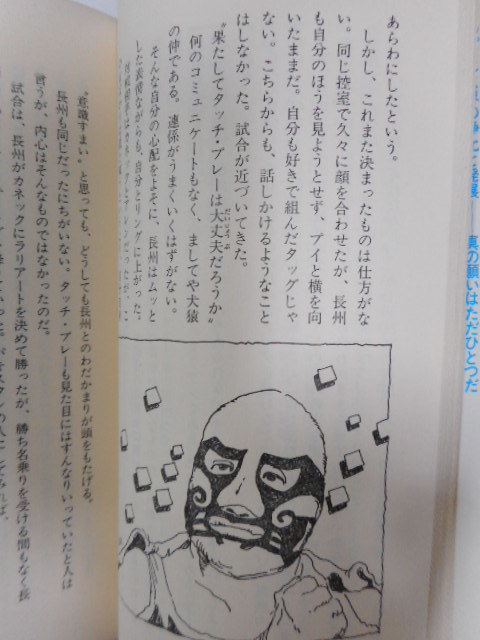 真の願いはただひとつだ
あらわにしたという。
しかし、これまた決まったものは仕方がな
い。同じ控室で久々に顔を合わせたが、長州
も自分のほうを見ようとせず、プイと横を向
いたままだ。自分も好きで組んだタッグじゃ
ない。こちらからも、話しかけるようなこと
はしなかった。試合が近づいてきた。
“果たしてタッチ・プレーは大丈夫だろうか”
何のコミュニケートもなく、ましてや犬猿
の仲である。連係がうまくいくはずがない。
そんな自分の心配をよそに、長州はムッと
した表情ながらも、自分とリングに上がった。
“意識すまい”と思っても、どうしても長州とのわだかまりが頭をもたげる。
長州も同じだったにちがいない。タッチ・プレーも見た目にはすんなりいっていたと人は
言うが、内心はそんなものではなかったのだ。
試合は、長州がカネックにラリアートを決めて勝ったが、勝ち名乗りを受ける間もなく長